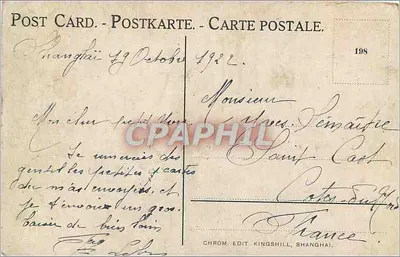 POST CARD. - POSTKARTE. - CARTE POSTALE.
Shanghaï 19 Octobre 1922
198
Mon cher petit Yves
Je remercie des
gentilles petites cartes
que m'as envoyées et
je t'envoie un gros
baiser de bien loin
Monsieur
Yves Lemaitre
Saint Cast
Cotes-du-Nord
France
CPAPHIL
CHROM. EDIT. KINGSHILL, SHANGHAI.